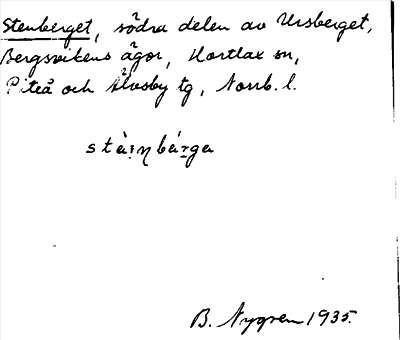 Stenberget, södra delen av Ursberget,
Bergsvikens ägor, Hortlax sn,
Piteå och Älvsby tg, Norrb. l.
B. Nygren 1935.